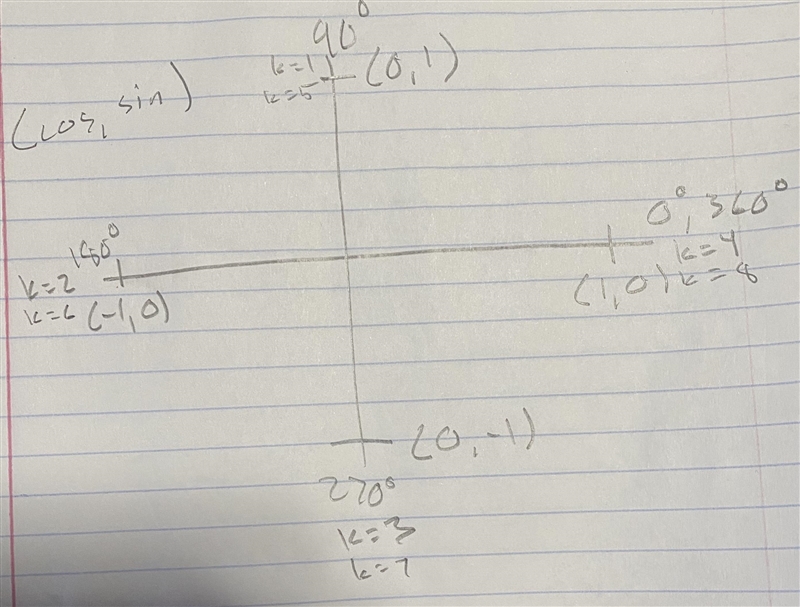 90°
k=1
(0,1)
k=5
(cos, sin)
0°, 360°
180°
k=4
k=2
(1,0) k=8
k=6 (-1,0)
(0,-1)
270°
k=3
k=7